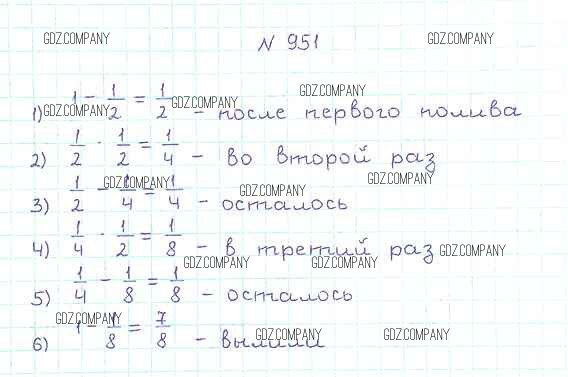 GDZ.COMPANY N 951 GDZ.COMPANY
1) 1 - 1/2 = 1/2 - после первого полива
GDZ.COMPANY GDZ.COMPANY GDZ.COMPANY
2) 1/2 · 1/2 = 1/4 - во второй раз
GDZ.COMPANY GDZ.COMPANY GDZ.COMPANY
3) 1/2 - 1/4 = 1/4 - осталось
4) 1/4 · 1/2 = 1/8 - в третий раз GDZ.COMPANY
GDZ.COMPANY GDZ.COMPANY
5) 1/4 - 1/8 = 1/8 - осталось
GDZ.COMPANY
6) 1 - 1/8 = 7/8 - вылили
GDZ.COMPANY GDZ.COMPANY